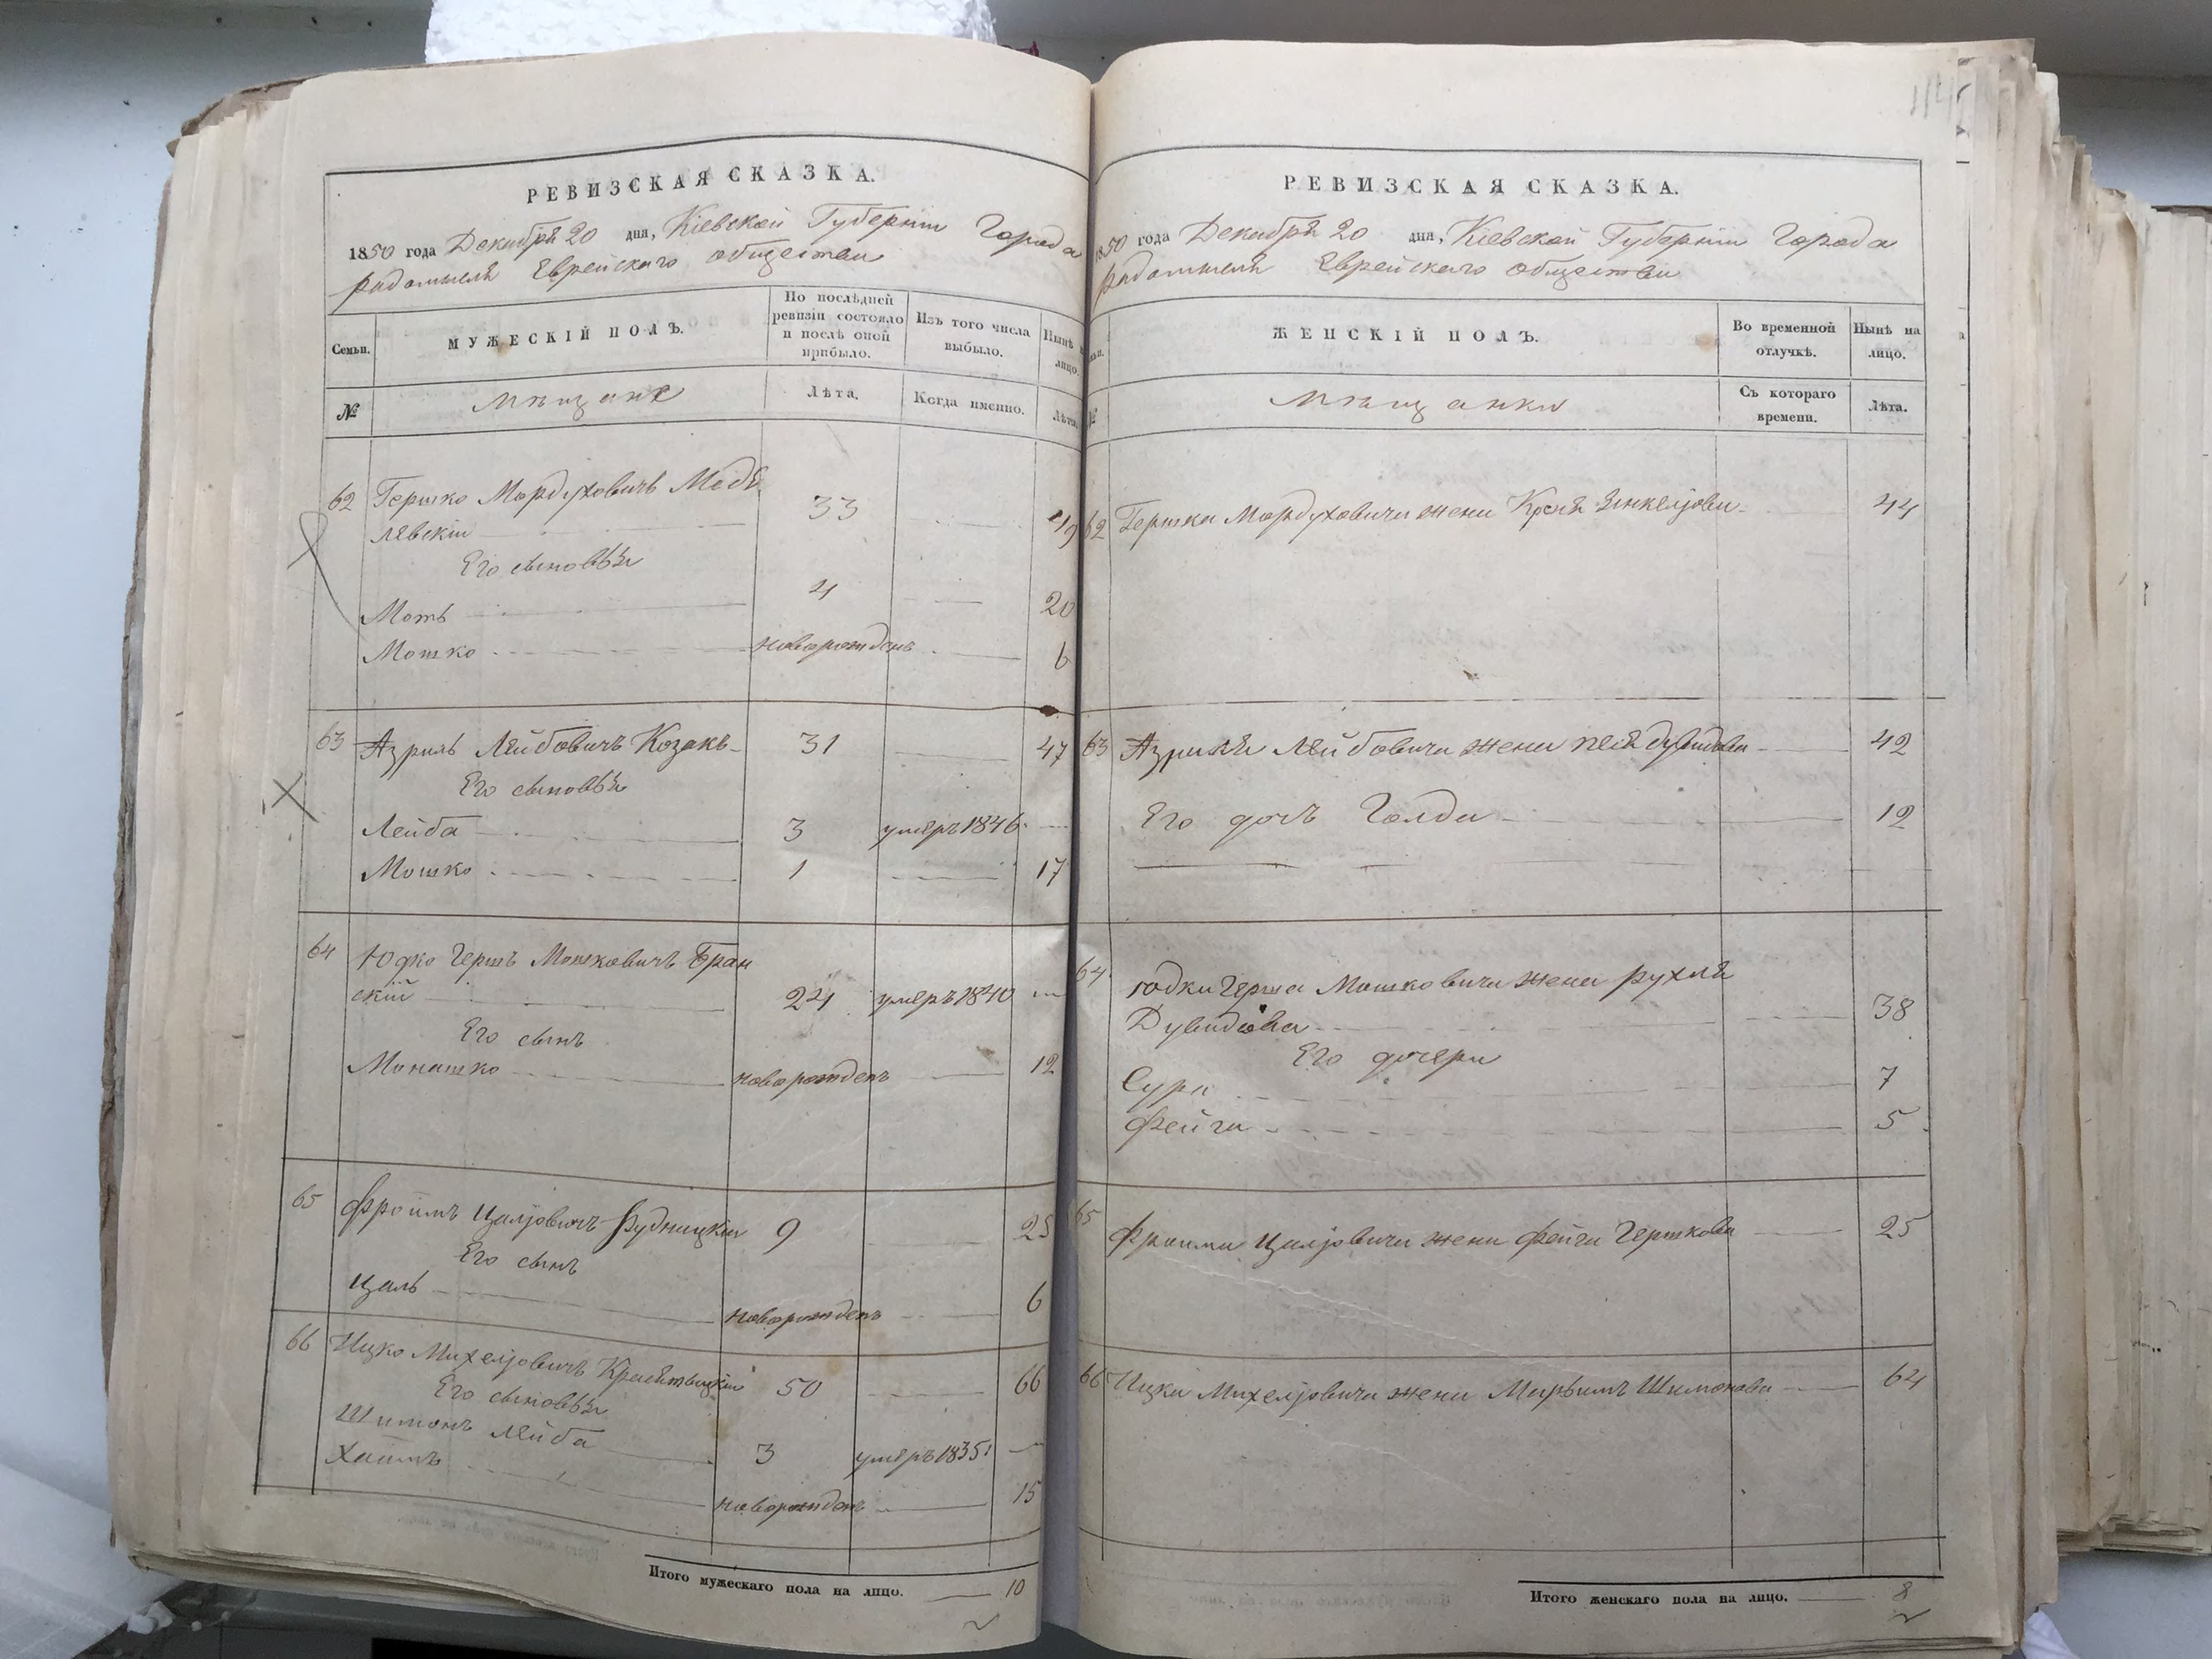 РЕВИЗСКАЯ СКАЗКА.
1850 года Декабря 20 дня, Кіевской Губерніи Города
Радомысля Еврейскаго общества
Семьи. МУЖЕСКІЙ ПОЛЪ. По послѣдней ревизіи состояло и послѣ оной прибыло. Изъ того числа выбыло. Нынѣ на лицо.
№ Мѣщане Лѣта. Когда именно. Лѣта.
62 Гершко Мордуховичъ Медв
левскій 33 49
Его сыновья
Моть 4 20
Мошко новорожденъ 6
63 Азриль Лейбовичъ Козакъ 31 47
Его сыновья
Лейба 3 умеръ 1846
Мошко 1 17
64 Юдко Гершъ Мошковичъ Бран
скій 24 умеръ 1840
Его сынъ
Монашко новорожденъ 12
65 Фроимъ Цалјовичъ Рудницкій 9 25
Его сынъ
Цаль новорожденъ 6
66 Ицко Михелјовичъ 50 66
Его сыновья
Шимонъ Лейба 3 умеръ 1835
Хаимъ новорожденъ 15
Итого мужескаго пола на лицо. 10
РЕВИЗСКАЯ СКАЗКА.
1850 года Декабря 20 дня, Кіевской Губерніи Города
Радомысля Еврейскаго общества
ЖЕНСКІЙ ПОЛЪ. Во временной отлучкѣ. Нынѣ на лицо.
№ Мѣщанки Съ котораго времени. Лѣта.
62 Гершка Мордуховича жена 44
63 Азриля Лейбовича жена Дувидова 42
Его дочь Голда 12
64 Юдки Герша Мошковича жена Рухля
Дувидова 38
Его дочери
Сура 7
Фейга 5
65 Фроима Цалјовича жена Фейга Гершкова 25
66 Ицки Михелјовича жена Марьимъ Шимонова 64
Итого женскаго пола на лицо. 8